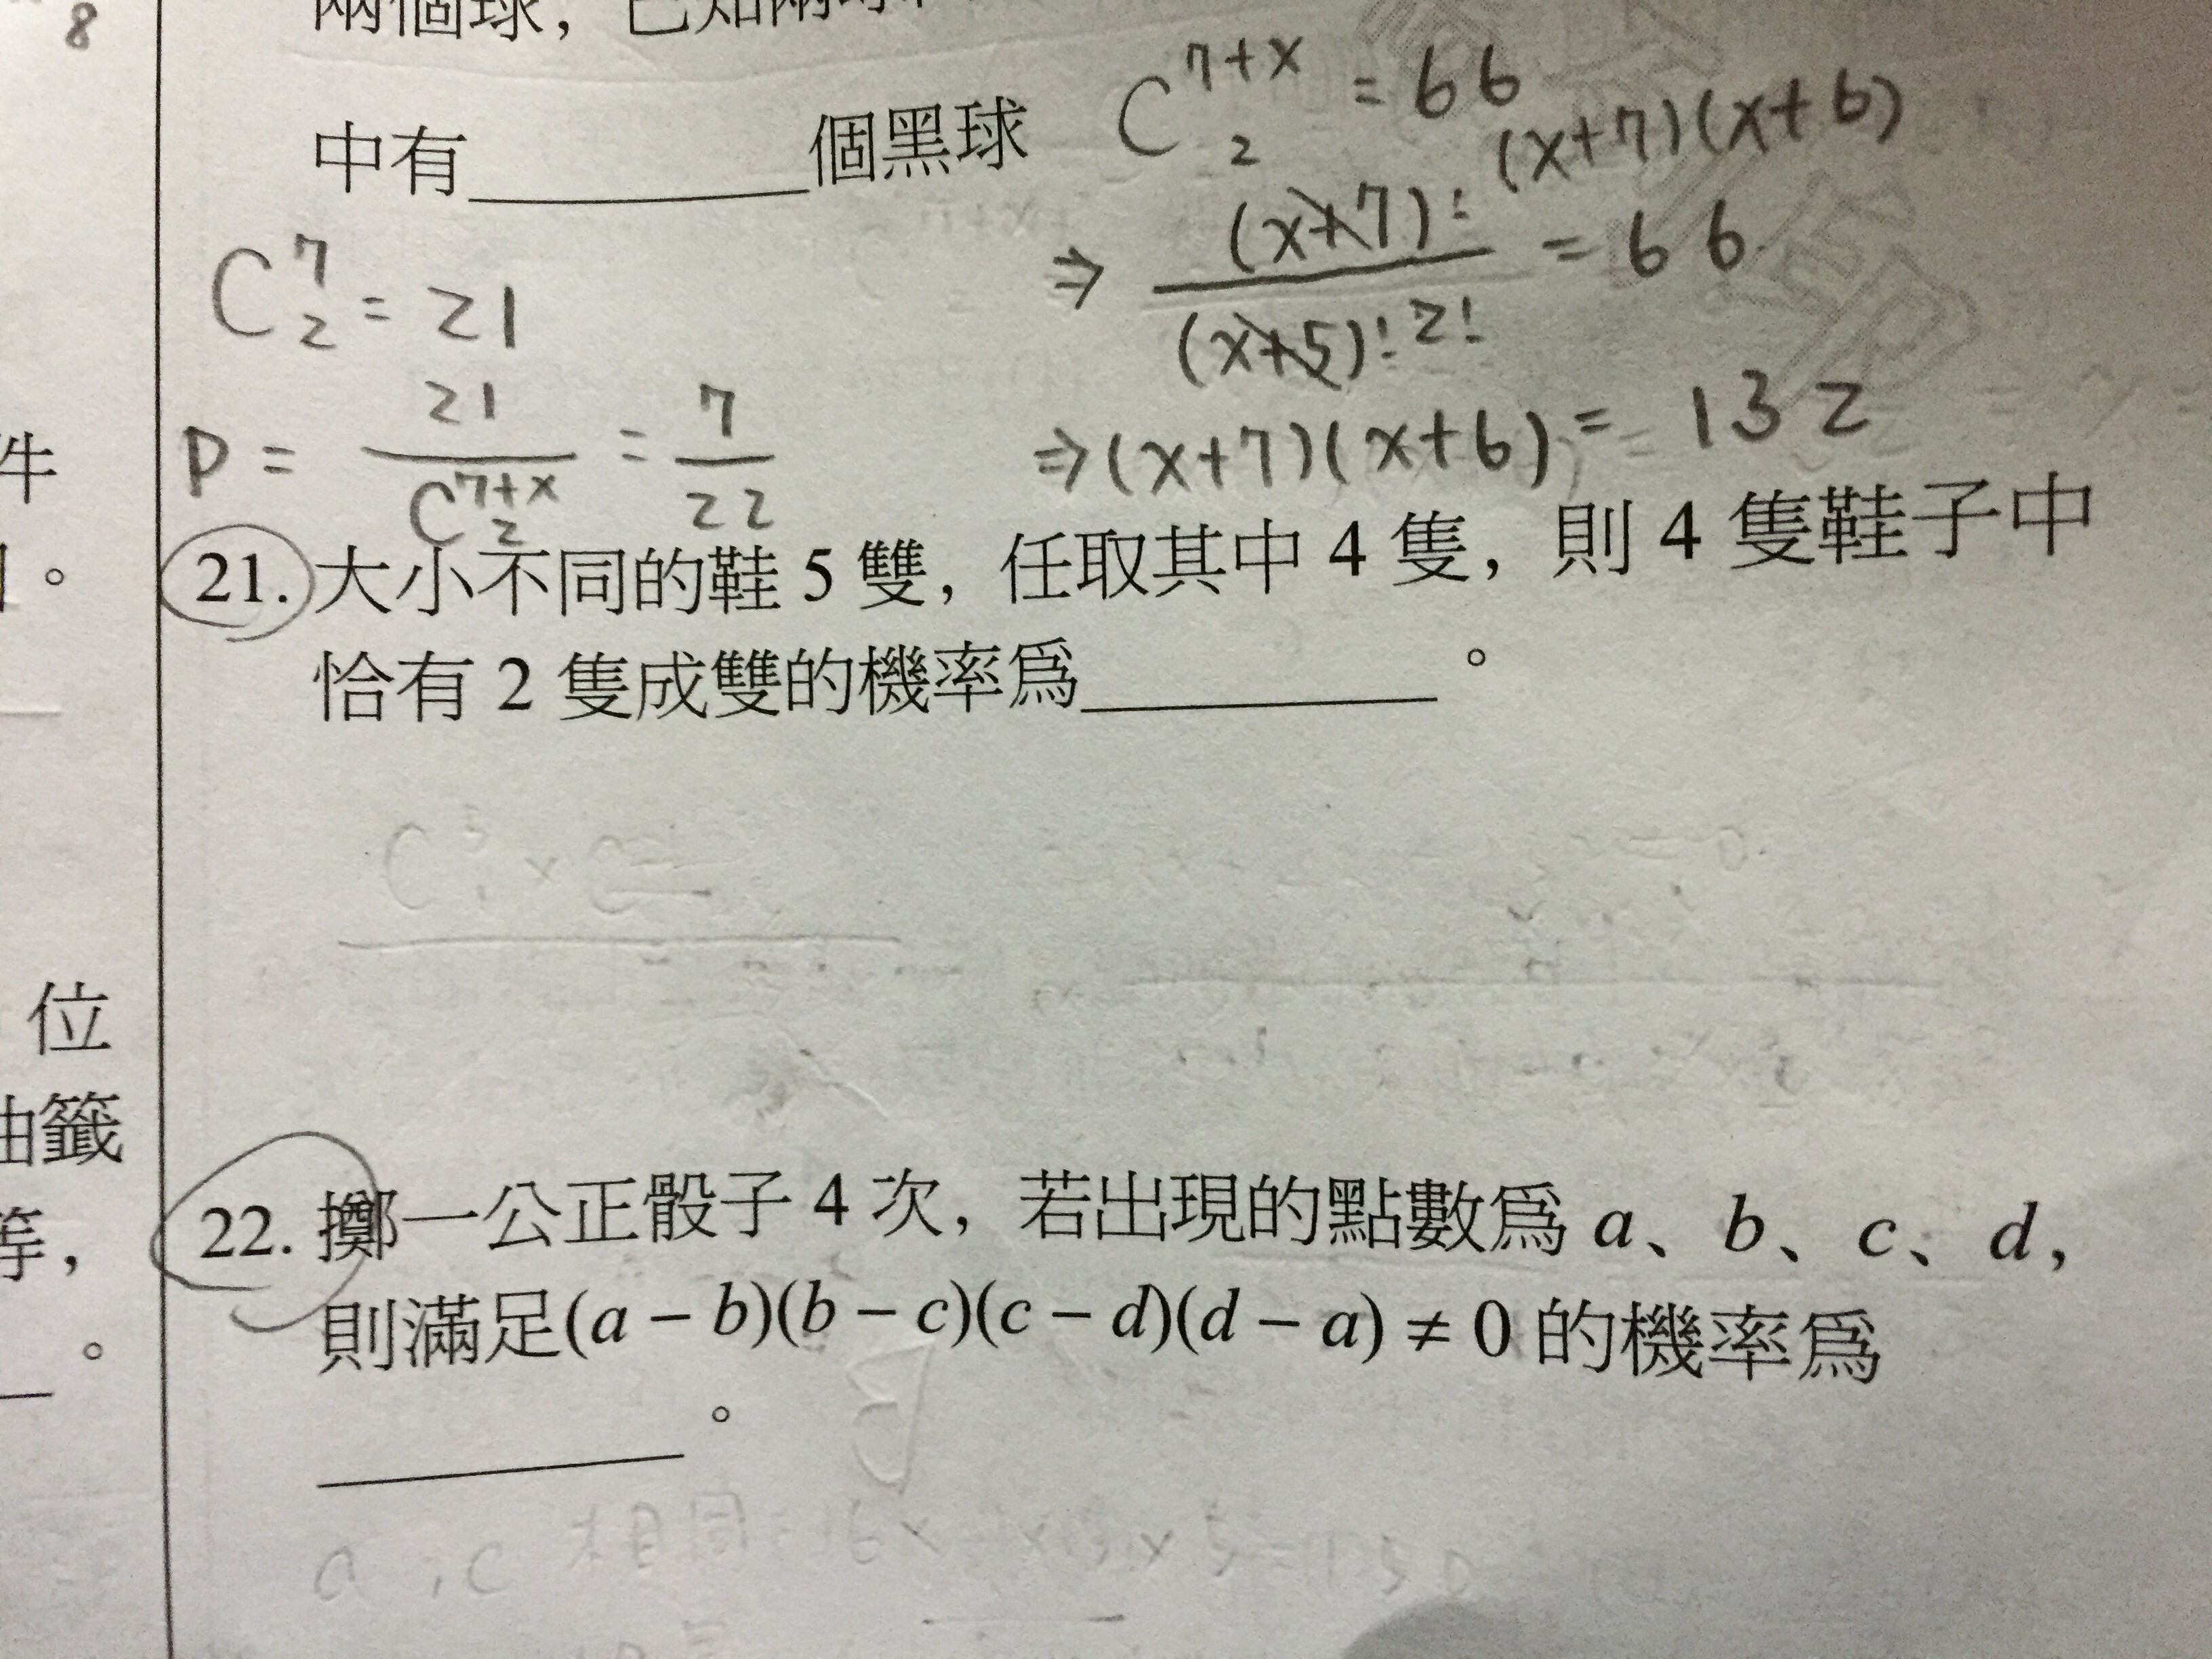 8
兩個球，已知兩球
中有________個黑球
C^{7+x}_2 = 66
(x+7)(x+6)
C^7_2 = 21
⇒ (x+7)! / (x+5)! 2! = 66
P = 21 / C^{7+x}_2 = 7/22
⇒ (x+7)(x+6) = 132
件
21. 大小不同的鞋 5 雙，任取其中 4 隻，則 4 隻鞋子中
。
恰有 2 隻成雙的機率為________。
位
籤
22. 擲一公正骰子 4 次，若出現的點數為 a、b、c、d，
等，
則滿足(a − b)(b − c)(c − d)(d − a) ≠ 0 的機率為
。
________。
a , c 相同